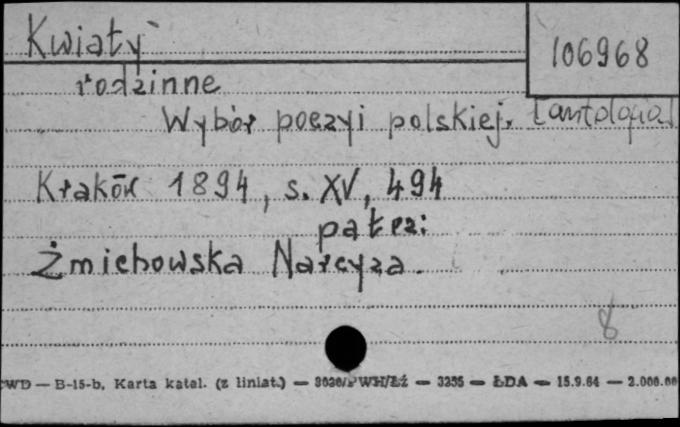 Kwiaty
106968
rodzinne
Wybór poezyi polskiej. [antologia]
Kraków 1894, s. XV, 494
patrz:
Żmichowska Narcyza.
8
CWD — B-15-b, Karta katal. (z liniat.) — 3030/PWH/Łź — 3255 — ŁDA — 15.9.64 — 2.000.00